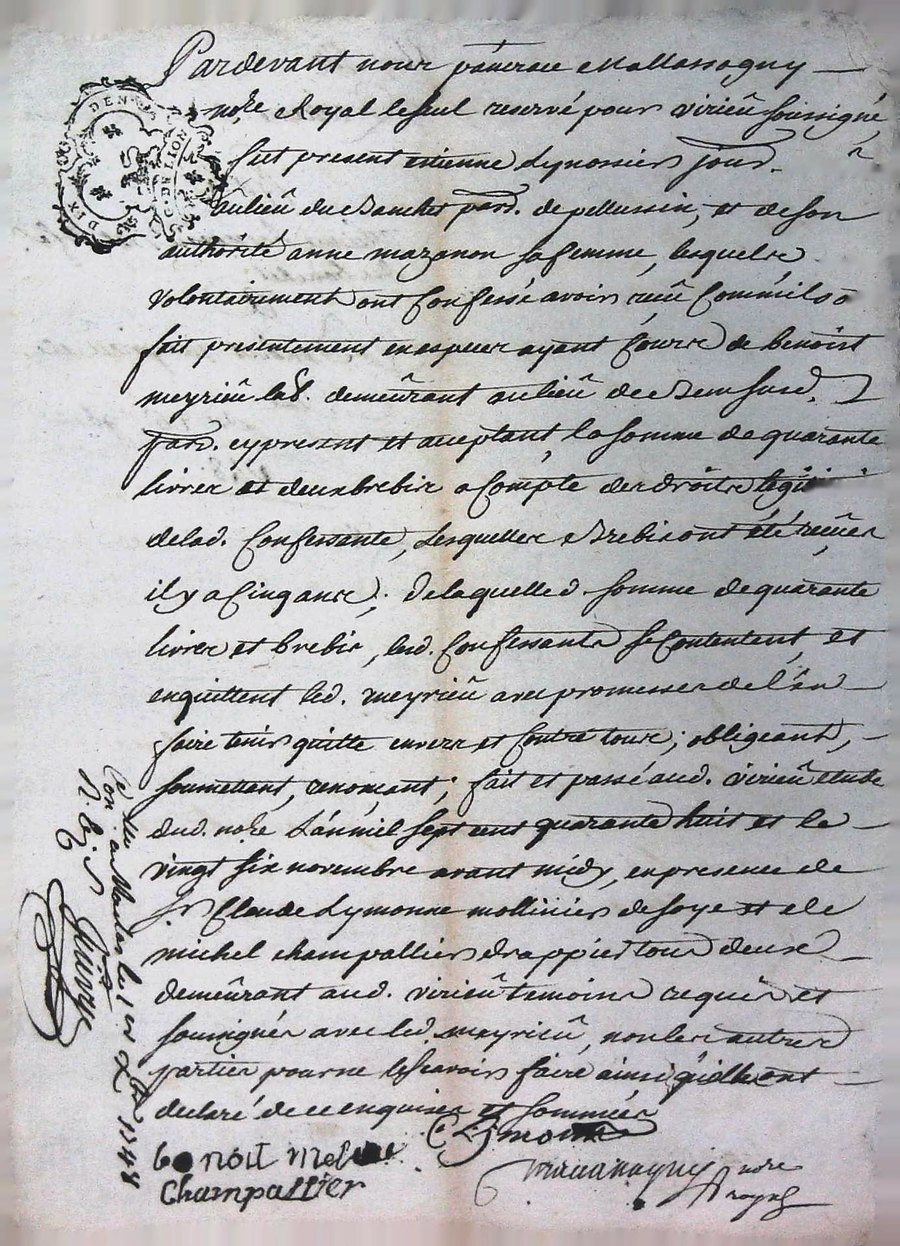 Pardevant nous pancrace Mallassagny
nore Royal le seul reservé pour virieû soussigné
fut present etienne Lymonier jour.
aulieû du Banchet parr. de pellussin, et de son
authorité anne mazanon sa femme, lesquels
volontairement ont Confessé avoir reçû Comm'ils o
fait presentement en especes ayant Cours de benoist
meyrieû lab. demeûrant aulieû de
parr. cy present et acceptant, la somme de quarante
livres et deux brebis a Compte des droits legit
delad. Confessante, Lesquelles Brebis ont été reçües
il y a Cinq ans; De laquelled. somme de quarante
livres et brebis, lesd. Confessants se Contentent, et
enquittent led. meyrieû avec promesses de l'en
faire tenir quitte envers et Contre tous; obligeant,
soumettant, renonçant; fait et passé aud. virieû etude
dud. nore L'an mil sept cent quarante huit et le
vingt six novembre avant midy, en presence de
sr Claude Lymonne mollinier de soye et de
michel champallier drappier tous deux
demeûrant aud. virieû temoins requis et
soussignés avec led. meyrieû, non les autres
parties pour ne le sçavoir faire ainsi qu'elles ont
declaré de ce enquises et sommées
C Lymonne
benoit me
Champallier
Mallassagny nore
royal
DIX DEN
G. DE LION
1748